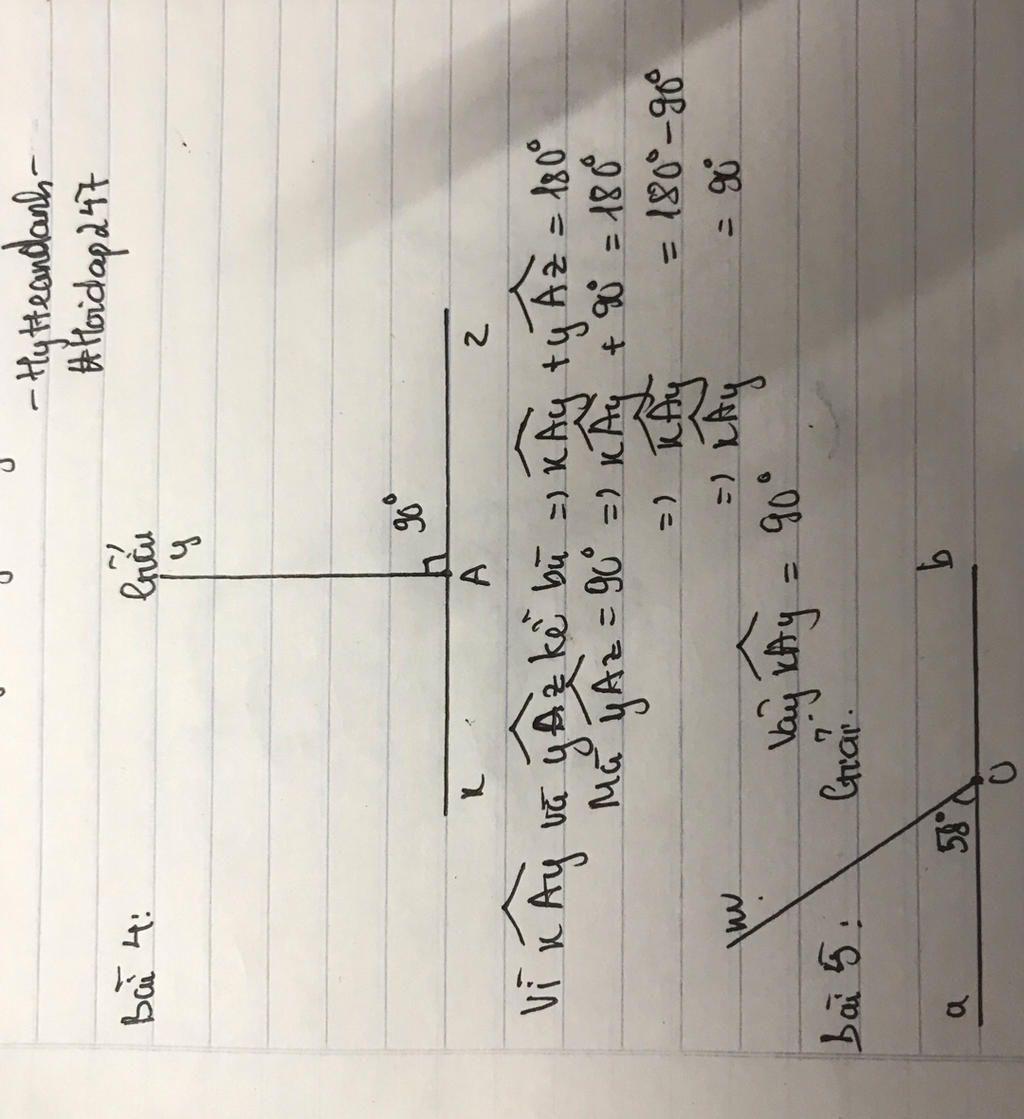 - HyHeandanh -
#Hoidap247
Bài 4:
Giải
y
90°
x A z
Vì xAy và yAz kề bù => xAy + yAz = 180°
Mà yAz = 90° => xAy + 90° = 180°
=> xAy = 180° - 90°
=> xAy = 90°
Vậy xAy = 90°
Bài 5: Giải:
m
58°
a O b